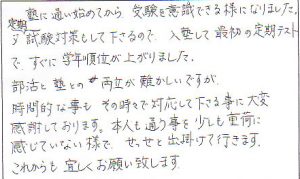 塾に通い始めてから 受験を意識できる様になりました。
定期試験対策もして下さるので、入塾して最初の定期テスト
で、すぐに学年順位が上がりました。
部活と塾との両立が難かしいですが、
時間的な事も その時々で対応して下さる事に大変
感謝しております。本人も通う事を少しも重荷に
感じていない様で、せっせと出掛けて行きます。
これからも宜しくお願い致します。